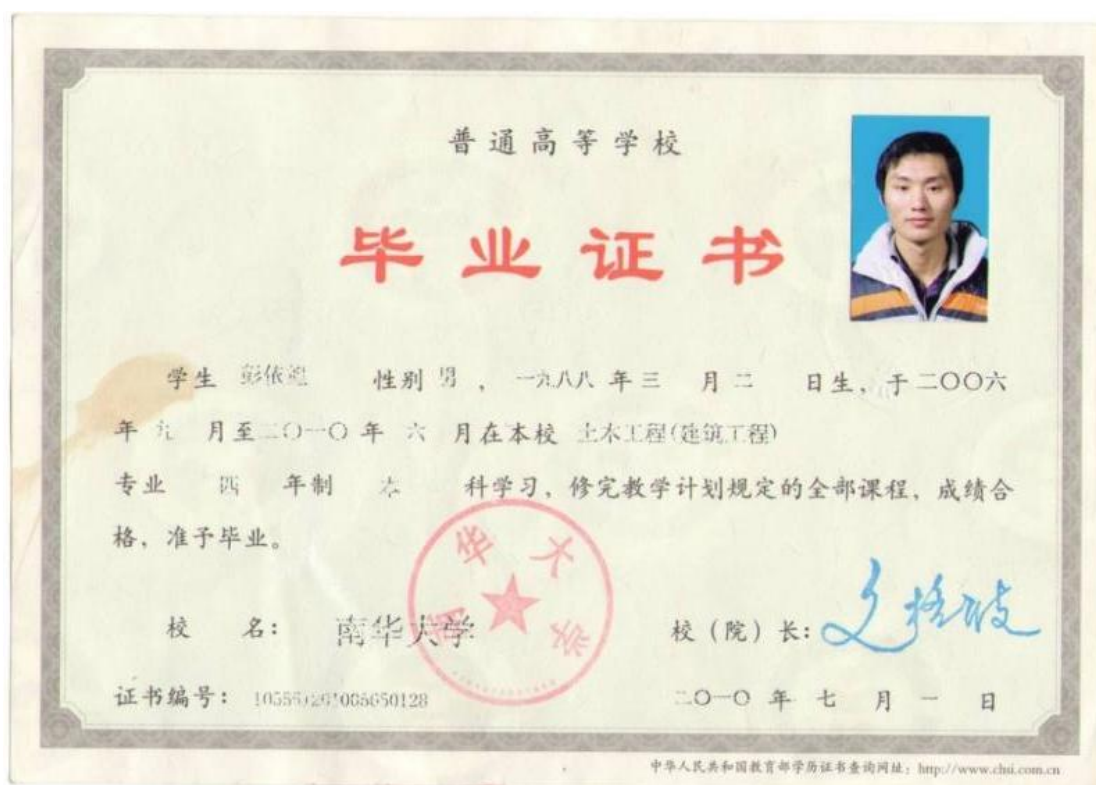 普通高等学校
毕业证书
学生 彭依 性别 男 , 一九八八 年 三 月 二 日生, 于二〇〇六
年 九 月至二〇一〇 年 六 月在本校 土木工程(建筑工程)
专业 四 年制 本 科学习, 修完教学计划规定的全部课程, 成绩合
格, 准予毕业。
南华大学
校 名: 南华大学
校(院)长:
证书编号:
二〇一〇 年 七 月 一 日
中华人民共和国教育部学历证书查询网址: http://www.chsi.com.cn